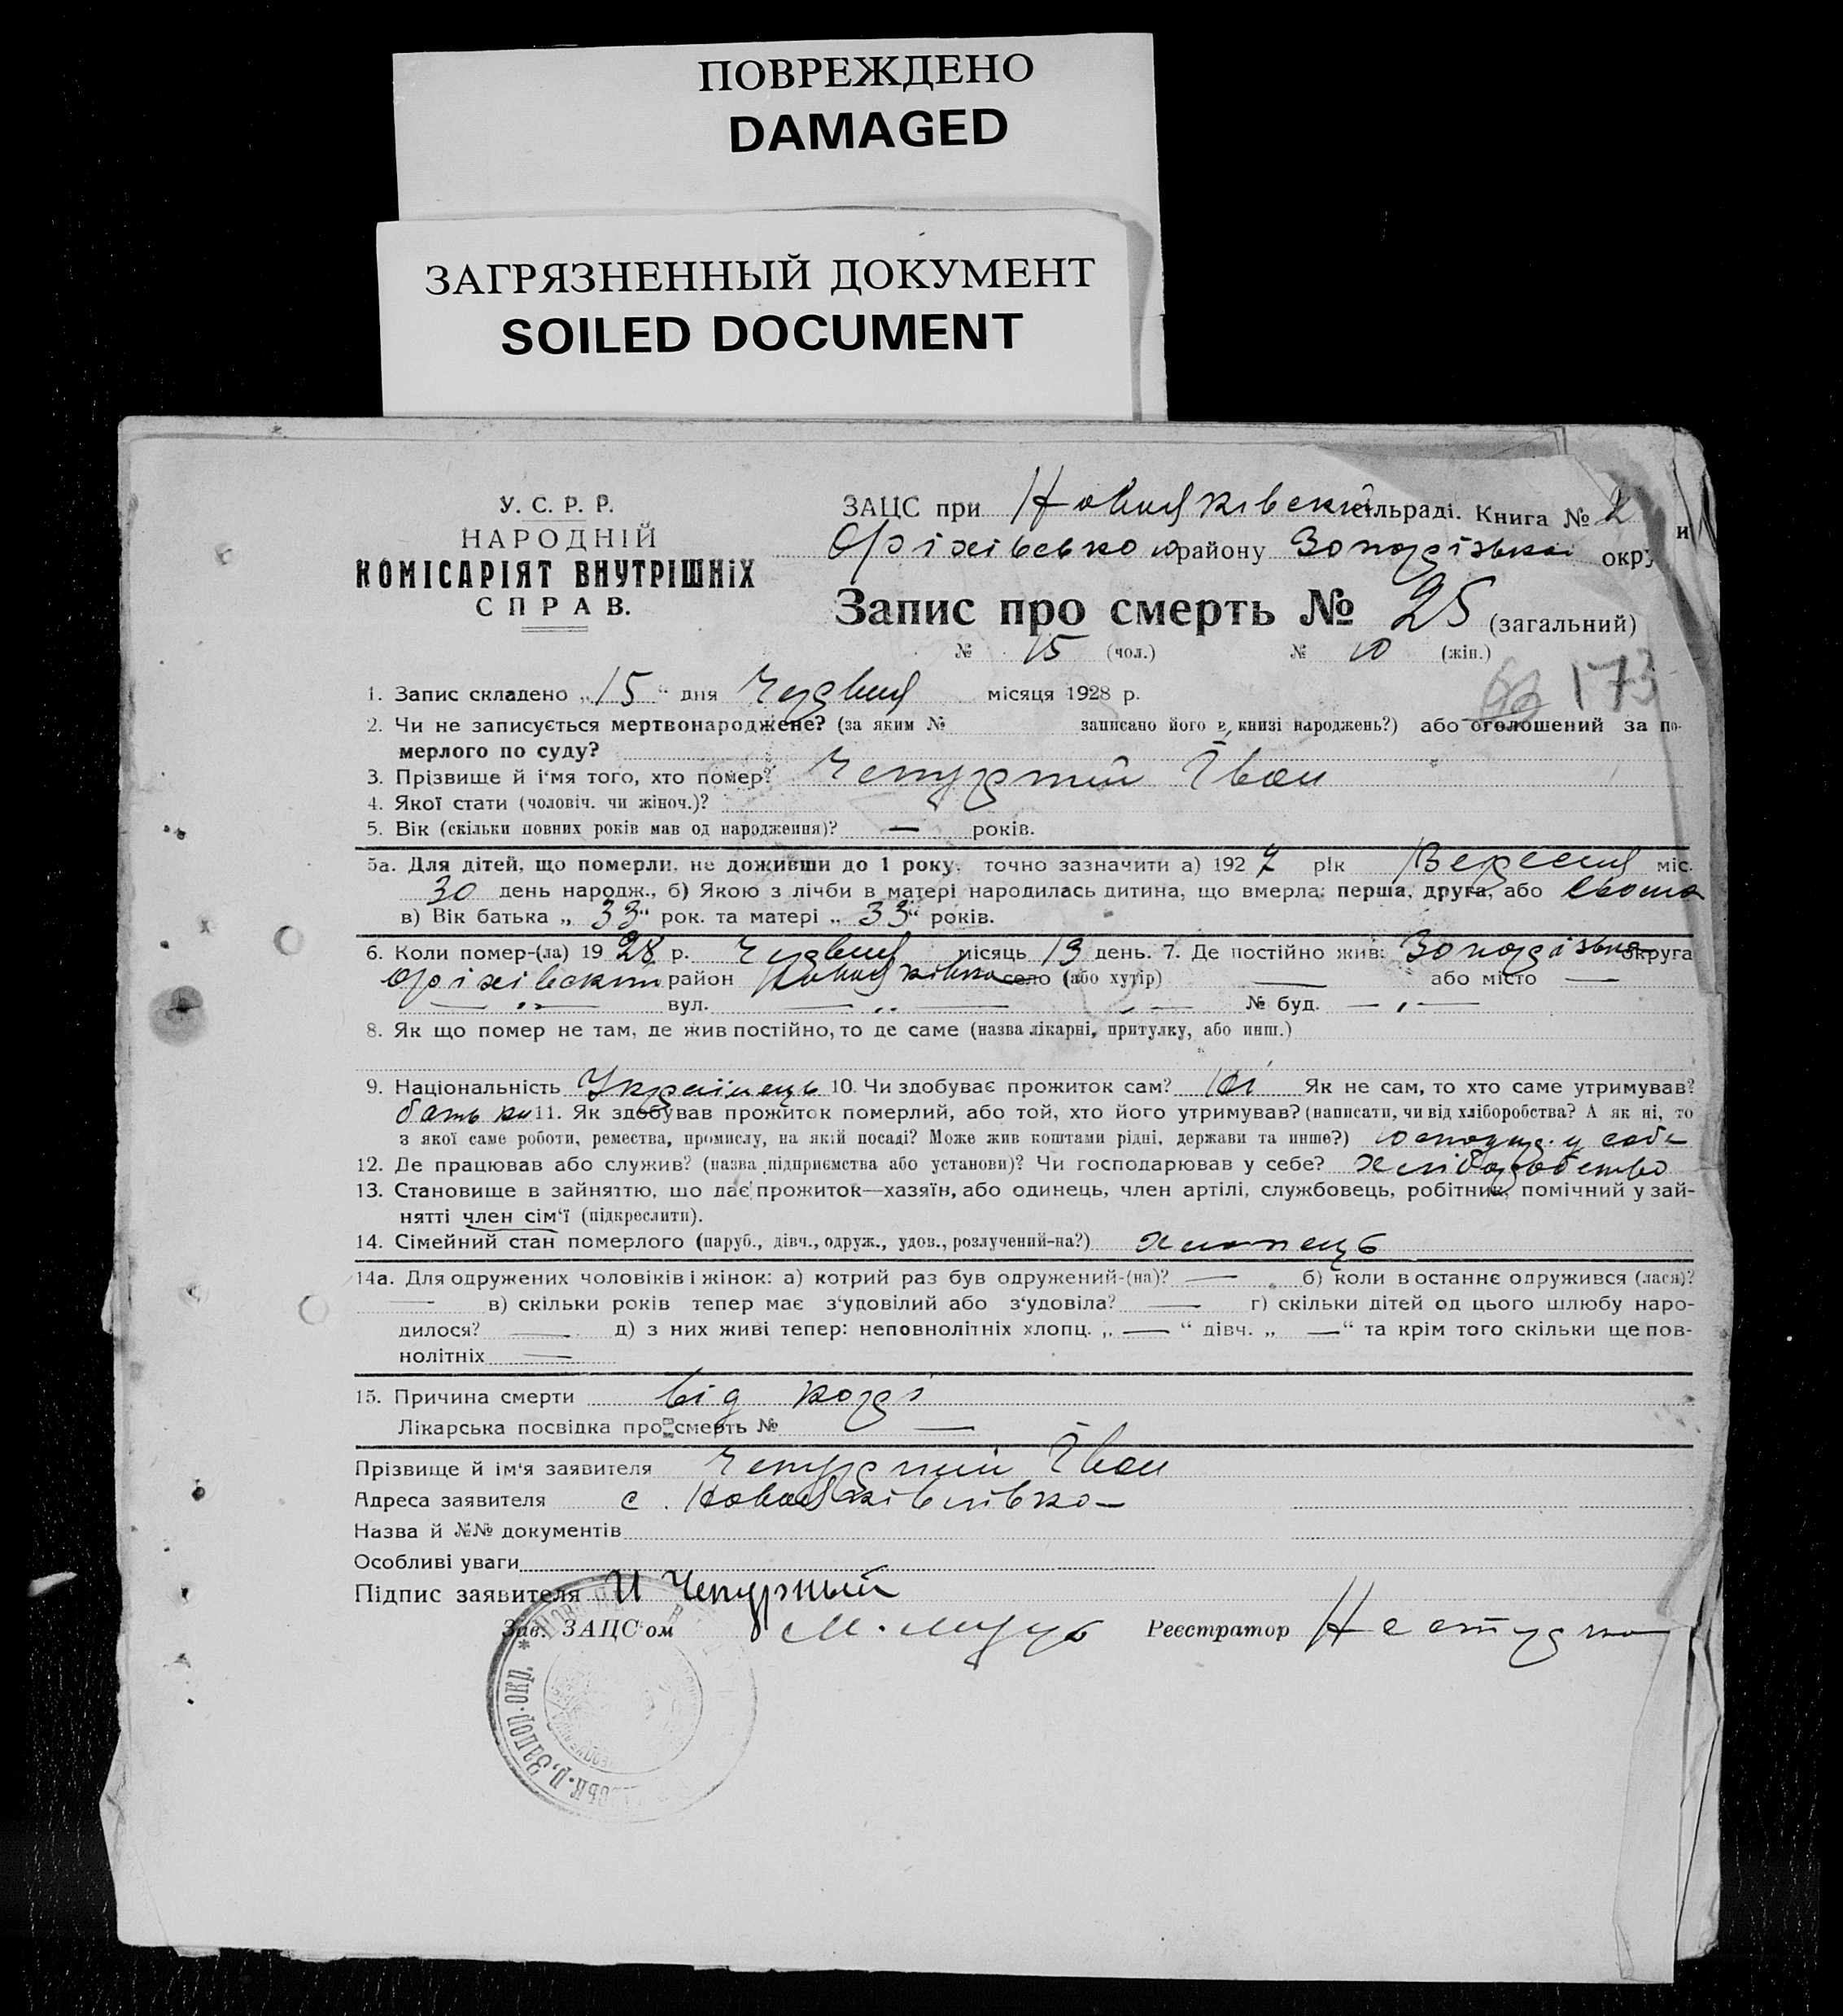 ПОВРЕЖДЕНО
DAMAGED
ЗАГРЯЗНЕННЫЙ ДОКУМЕНТ
SOILED DOCUMENT
У. С. Р. Р.
НАРОДНІЙ
КОМІСАРІЯТ ВНУТРІШНІХ
СПРАВ.
ЗАЦС при сільраді. Книга № 2
Оріхівського району Запорізької окру
и
Запис про смерть № 25 (загальний)
№ 15 (чол.) № 10 (жін.)
173
1. Запис складено „15“ дня Червня місяця 1928 р.
2. Чи не записується мертвонароджене? (за яким № записано його в книзі народжень?) або оголошений за по-
мерлого по суду?
3. Прізвище й і'мя того, хто помер? Чепурний Іван
4. Якої стати (чоловіч. чи жіноч.)?
5. Вік (скільки повних років мав од народження)? — років.
5а. Для дітей, що померли, не доживши до 1 року, точно зазначити а) 1927 рік Вересня міс.
30 день народж., б) Якою з лічби в матері народилась дитина, що вмерла: перша, друга, або
в) Вік батька „33“ рок. та матері „33“ років.
6. Коли помер-(ла) 1928 р. Червня місяць 13 день. 7. Де постійно жив: Запорізька округа
Оріхівський район село (або хутір) — або місто —
— „ — вул. — „ — № буд. — „ —
8. Як що помер не там, де жив постійно, то де саме (назва лікарні, притулку, або инш.)
9. Національність Українець 10. Чи здобуває прожиток сам? Ні Як не сам, то хто саме утримував?
батьки 11. Як здобував прожиток померлий, або той, хто його утримував? (написати, чи від хліборобства? А як ні, то
з якої саме роботи, ремества, промислу, на якій посаді? Може жив коштами рідні, держави та инше?) господар. у себе
12. Де працював або служив? (назва підприємства або установи)? Чи господарював у себе? хліборобство
13. Становище в зайняттю, що дає прожиток—хазяїн, або одинець, член артілі, службовець, робітник, помічний у зай-
нятті член сім'ї (підкреслити).
14. Сімейний стан померлого (паруб., дівч., одруж., удов., розлучений-на?) хлопець
14а. Для одружених чоловіків і жінок: а) котрий раз був одружений-(на)? — б) коли востаннє одружився (лася)?
— в) скільки років тепер має з'удовілий або з'удовіла? — г) скільки дітей од цього шлюбу наро-
дилося? — д) з них живі тепер: неповнолітніх хлопц. „ — “ дівч. „ — “ та крім того скільки ще пов-
нолітніх —
15. Причина смерти від корі
Лікарська посвідка про смерть № —
Прізвище й ім'я заявителя Чепурний Іван
Адреса заявителя с.
Назва й №№ документів
Особливі уваги
Підпис заявителя И Чепурный
Зав. ЗАЦС'ом М. Реєстратор
Запор. окр.